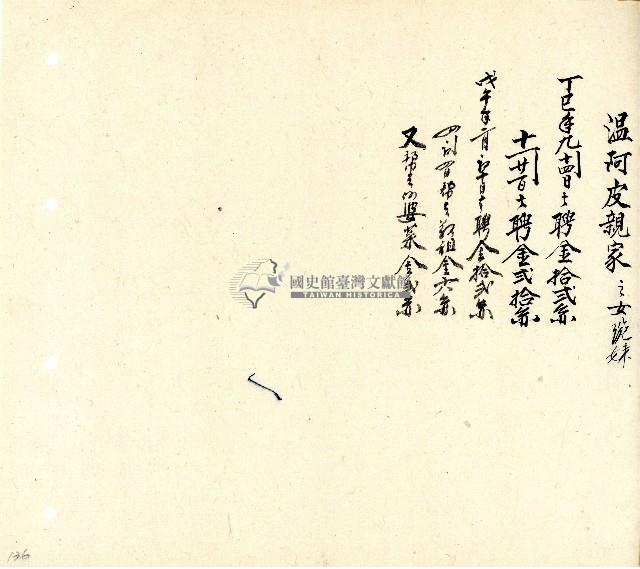 温阿皮親家之女琬妹
丁巳年九月十四日去聘金拾弍元
十一月廿日去聘金弍拾元
戊午年二月初十日去聘金拾弍元
四月 日 租金六元
又 婆菜金弍元
國史館臺灣文獻館
TAIWAN HISTORICA
136